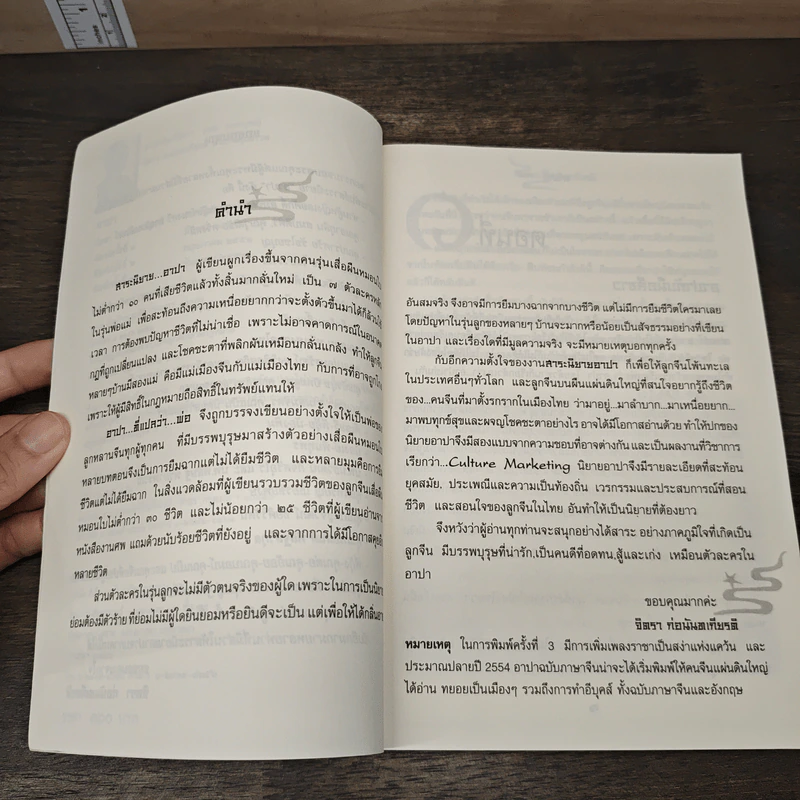 คำนำ
สาระนิยาย...อาปา ผู้เขียนผูกเรื่องขึ้นจากคนรุ่นเสื่อผืนหมอนใบ
ไม่ต่ำกว่า ๑๐ คนที่เสียชีวิตแล้วทั้งสิ้นมากลั่นใหม่ เป็น ๗ ตัวละครหลัก
ในรุ่นพ่อแม่ เพื่อสะท้อนถึงความเหนื่อยยากกว่าจะตั้งตัวขึ้นมาได้ก็ล้วนใช้
เวลา การต้องพบปัญหาชีวิตที่ไม่น่าเชื่อ เพราะไม่อาจคาดการณ์ในอนาคต
กฎที่ถูกเปลี่ยนแปลง และโชคชะตาที่พลิกผันเหมือนกลั่นแกล้ง ทำให้ลูกจีน
หลายๆบ้านมีสองแม่ คือมีแม่เมืองจีนกับแม่เมืองไทย กับการที่อาจถูกโกง
เพราะให้ผู้มีสิทธิ์ในกฎหมายถือสิทธิ์ในทรัพย์แทนให้
อาปา...ที่แปลว่า...พ่อ จึงถูกบรรจงเขียนอย่างตั้งใจให้เป็นพ่อของ
ลูกหลานจีนทุกผู้ทุกคน ที่มีบรรพบุรุษมาสร้างตัวอย่างเสื่อผืนหมอนใบ
หลายบทตอนจึงเป็นการยืมฉากแต่ไม่ได้ยืมชีวิต และหลายมุมคือการยืม
ชีวิตแต่ไม่ได้ยืมฉาก ในสิ่งแวดล้อมที่ผู้เขียนรวบรวมชีวิตของลูกจีนเสื่อผืน
หมอนใบไม่ต่ำกว่า ๓๐ ชีวิต และไม่น้อยกว่า ๒๕ ชีวิตที่ผู้เขียนอ่านจาก
หนังสืองานศพ แถมด้วยนับร้อยชีวิตที่ยังอยู่ และจากการได้มีโอกาสคุยกับ
หลายชีวิต
ส่วนตัวละครในรุ่นลูกจะไม่มีตัวตนจริงของผู้ใด เพราะในการเป็นนิยาย
ย่อมต้องมีตัวร้าย ที่ย่อมไม่มีผู้ใดยินยอมหรือยินดีจะเป็น แต่เพื่อให้ได้กลิ่นอาย
อันสมจริง จึงอาจมีการยืมบางฉากจากบางชีวิต แต่ไม่มีการยืมชีวิตใครมาเลย
โดยปัญหาในรุ่นลูกของหลายๆ บ้านจะมากหรือน้อยเป็นสัจธรรมอย่างที่เขียน
ในอาปา และเรื่องใดที่มีมูลความจริง จะมีหมายเหตุบอกทุกครั้ง
กับอีกความตั้งใจของงานสาระนิยายอาปา ก็เพื่อให้ลูกจีนโพ้นทะเล
ในประเทศอื่นๆทั่วโลก และลูกจีนบนผืนแผ่นดินใหญ่ที่สนใจอยากรู้ถึงชีวิต
ของ...คนจีนที่มาตั้งรกรากในเมืองไทย ว่ามาอยู่...มาลำบาก...มาเหนื่อยยาก...
มาพบทุกข์สุขและผจญโชคชะตาอย่างไร อาจได้มีโอกาสอ่านด้วย ทำให้ปกของ
นิยายอาปาจึงมีสองแบบจากความชอบที่อาจต่างกัน และเป็นผลงานที่วิชาการ
เรียกว่า...Culture Marketing นิยายอาปาจึงมีรายละเอียดที่สะท้อน
ยุคสมัย, ประเพณีและความเป็นท้องถิ่น เวรกรรมและประสบการณ์ที่สอน
ชีวิต และสอนใจของลูกจีนในไทย อันทำให้เป็นนิยายที่ต้องยาว
จึงหวังว่าผู้อ่านทุกท่านจะสนุกอย่างได้สาระ อย่างภาคภูมิใจที่เกิดเป็น
ลูกจีน มีบรรพบุรุษที่น่ารัก,เป็นคนดีที่อดทน,สู้และเก่ง เหมือนตัวละครใน
อาปา
ขอบคุณมากค่ะ
จิตรา ก่อนันทเกียรติ
หมายเหตุ ในการพิมพ์ครั้งที่ 3 มีการเพิ่มเพลงราชาเป็นสง่าแห่งแคว้น และ
ประมาณปลายปี 2554 อาปาฉบับภาษาจีนน่าจะได้เริ่มพิมพ์ให้คนจีนแผ่นดินใหญ่
ได้อ่าน ทยอยเป็นเมืองๆ รวมถึงการทำอีบุคส์ ทั้งฉบับภาษาจีนและอังกฤษ